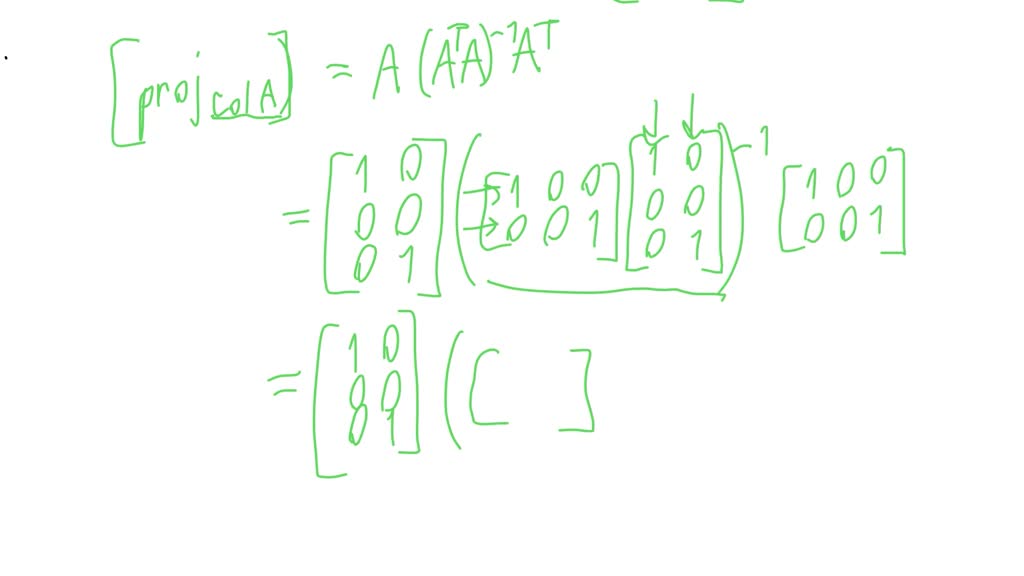 [proj_{col A}] = A (A^T A)^{-1} A^T
= [1 0; 0 0; 0 1] ([1 0 0; 0 0 1] [1 0; 0 0; 0 1])^{-1} [1 0 0; 0 0 1]
= [1 0; 0 0; 0 1] ([ ]